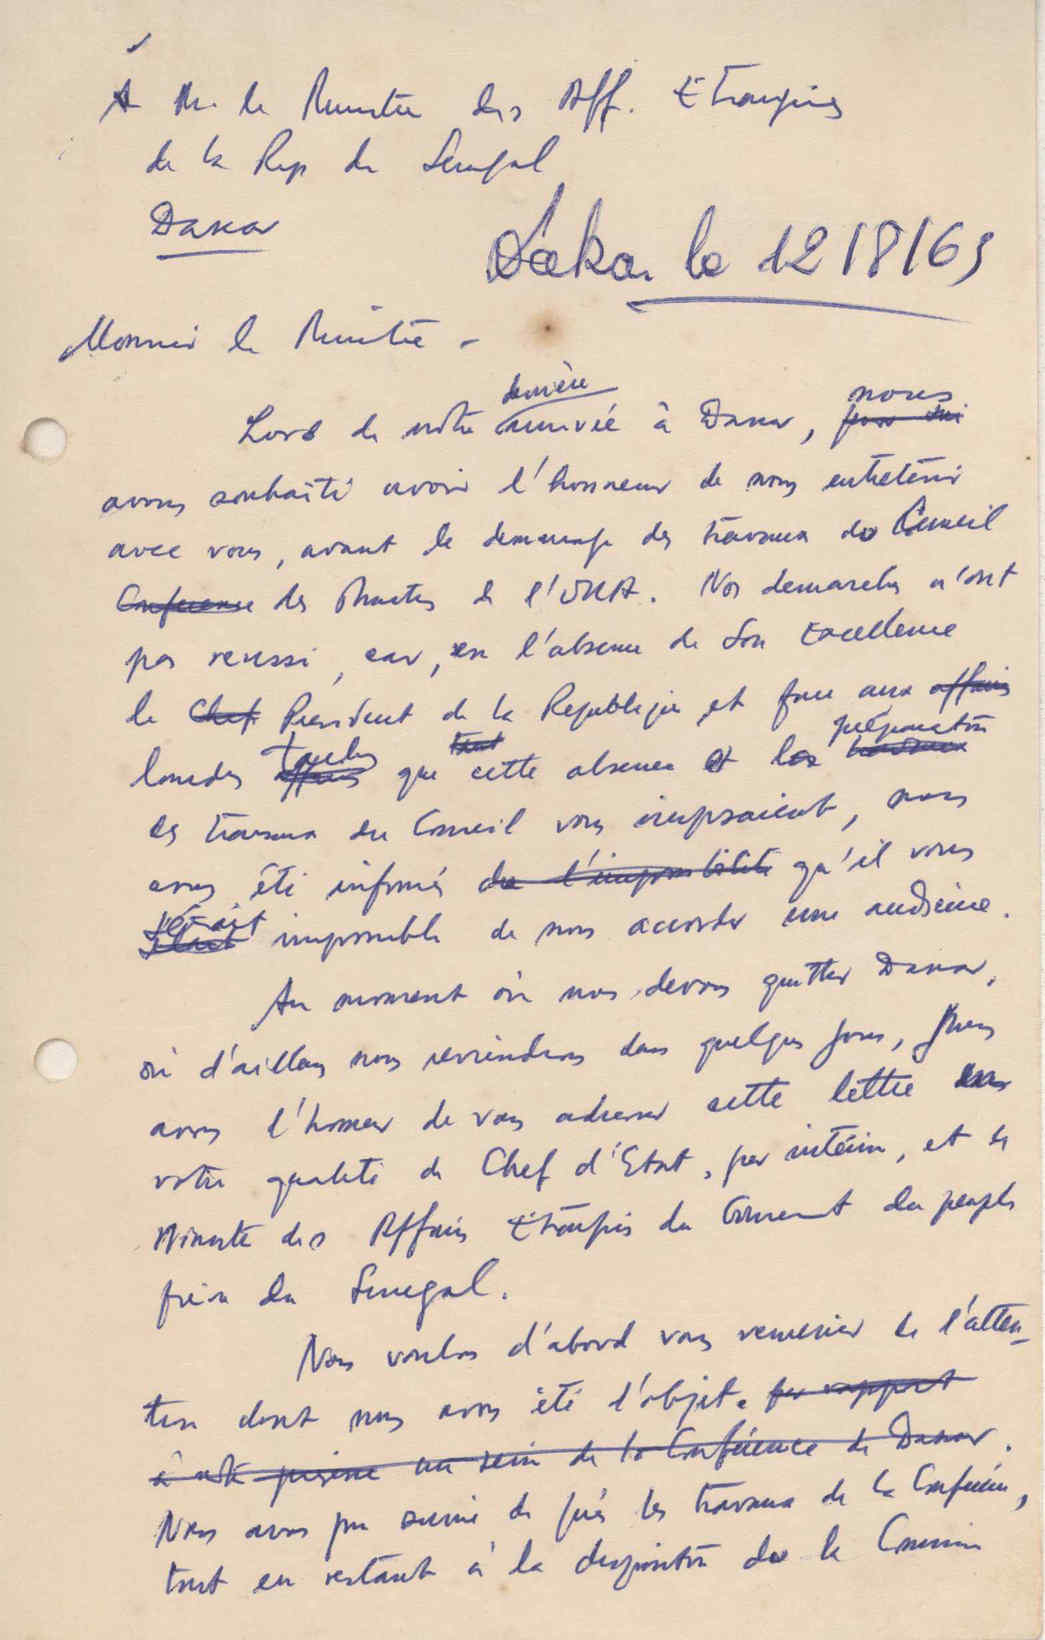 A M. le Ministre des Aff. Etrangères
de la Rep du Senegal
Dakar
Dakar le 12/8/63
Monsieur le Ministre -
dernière nous
Lors de notre arrivée à Dakar,
avons souhaité avoir l'honneur de nous entretenir
avec vous, avant le demarrage des travaux du Conseil
Conference des Ministres de l'OUA. Nos demarches n'ont
pas reussi, car, en l'absence de Son Excellence
le Chef President de la Republique et face aux affaires
taches tant préparation
lourdes affaires que cette absence et les travaux
des travaux du Conseil vous imposaient, nous
avons été informés de l'impossibilité qu'il vous
serait
était impossible de nous accorder une audience.
Au moment où nous devons quitter Dakar,
où d'ailleurs nous reviendrons dans quelques jours, nous
avons l'honneur de vous adresser cette lettre
votre qualité de Chef d'Etat, par intérim, et de
Ministre des Affaires Etrangères du Gouvernement du peuple
frère du Senegal.
Nous voulons d'abord vous remercier de l'atten-
tion dont nous avons été l'objet. par rapport
à notre présence au sein de la Conférence de Dakar.
Nous avons pu suivre de près les travaux de la Conférence,
tout en restant à la disposition de la Commission